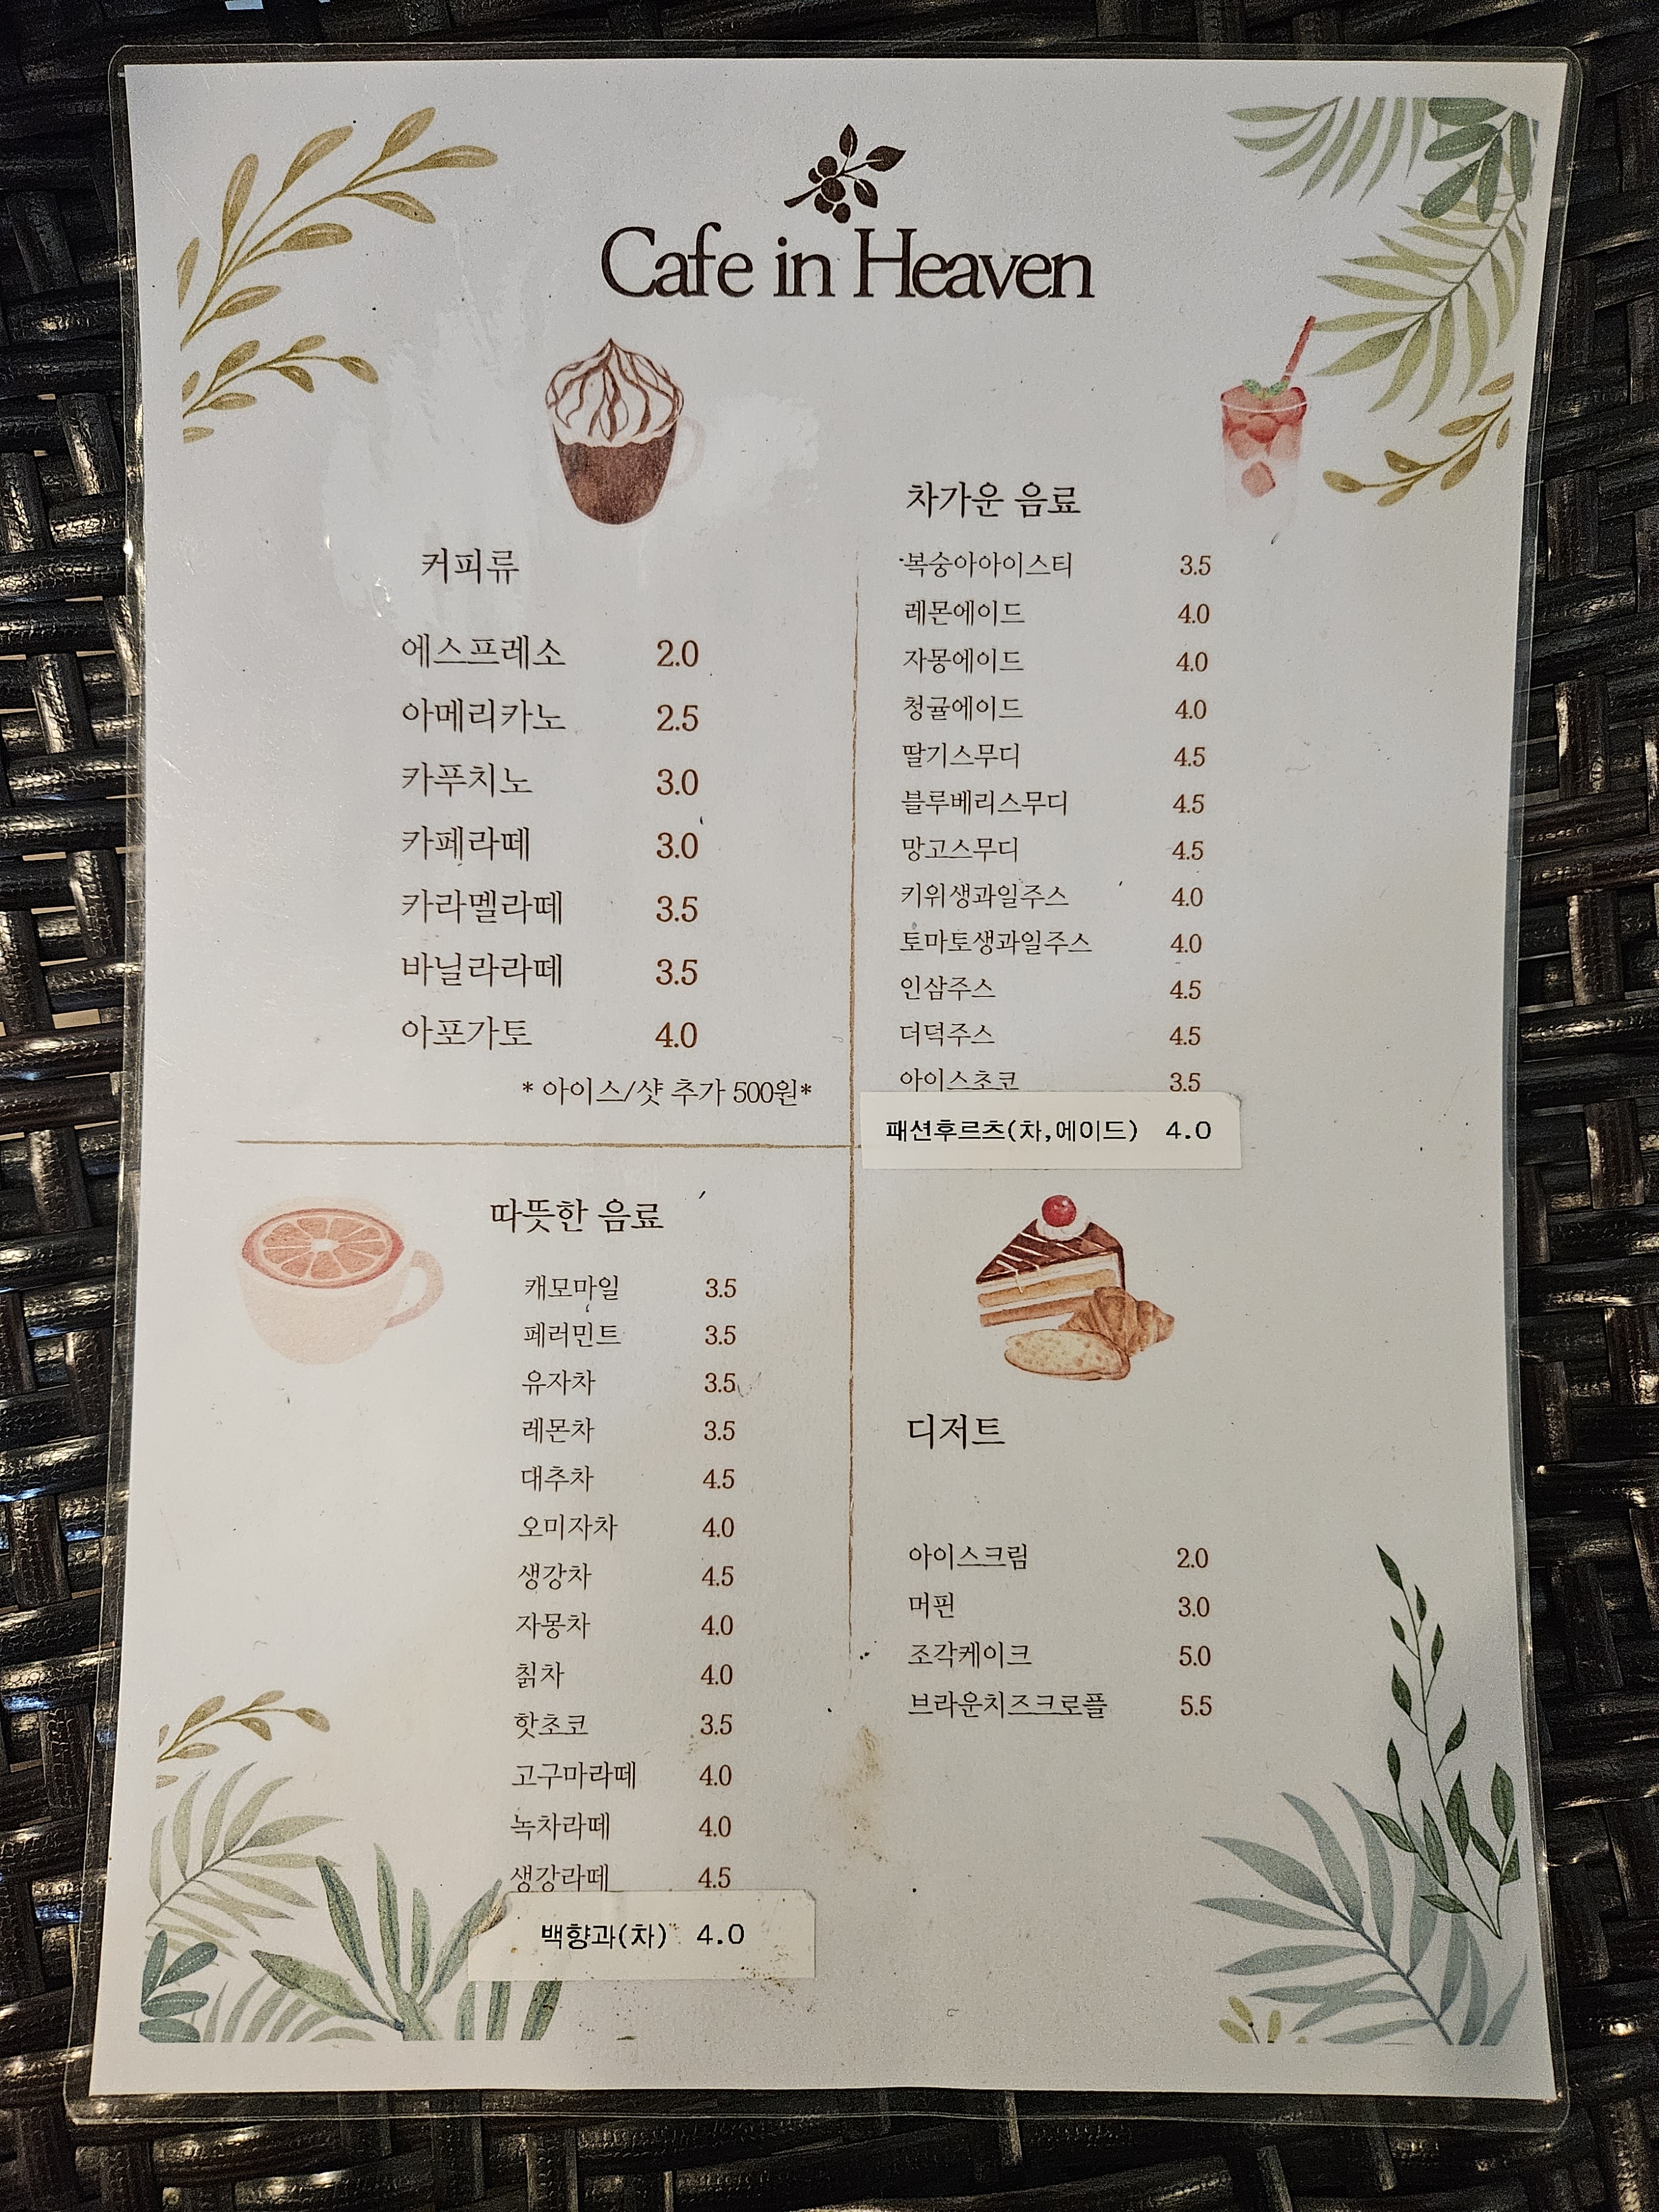 Cafe in Heaven
커피류
에스프레소 2.0
아메리카노 2.5
카푸치노 3.0
카페라떼 3.0
카라멜라떼 3.5
바닐라라떼 3.5
아포가토 4.0
* 아이스/샷 추가 500원*
차가운 음료
복숭아아이스티 3.5
레몬에이드 4.0
자몽에이드 4.0
청귤에이드 4.0
딸기스무디 4.5
블루베리스무디 4.5
망고스무디 4.5
키위생과일주스 4.0
토마토생과일주스 4.0
인삼주스 4.5
더덕주스 4.5
아이스초코 3.5
패션후르츠(차,에이드) 4.0
따뜻한 음료
캐모마일 3.5
페러민트 3.5
유자차 3.5
레몬차 3.5
대추차 4.5
오미자차 4.0
생강차 4.5
자몽차 4.0
칡차 4.0
핫초코 3.5
고구마라떼 4.0
녹차라떼 4.0
생강라떼 4.5
백향과(차) 4.0
디저트
아이스크림 2.0
머핀 3.0
조각케이크 5.0
브라운치즈크로플 5.5